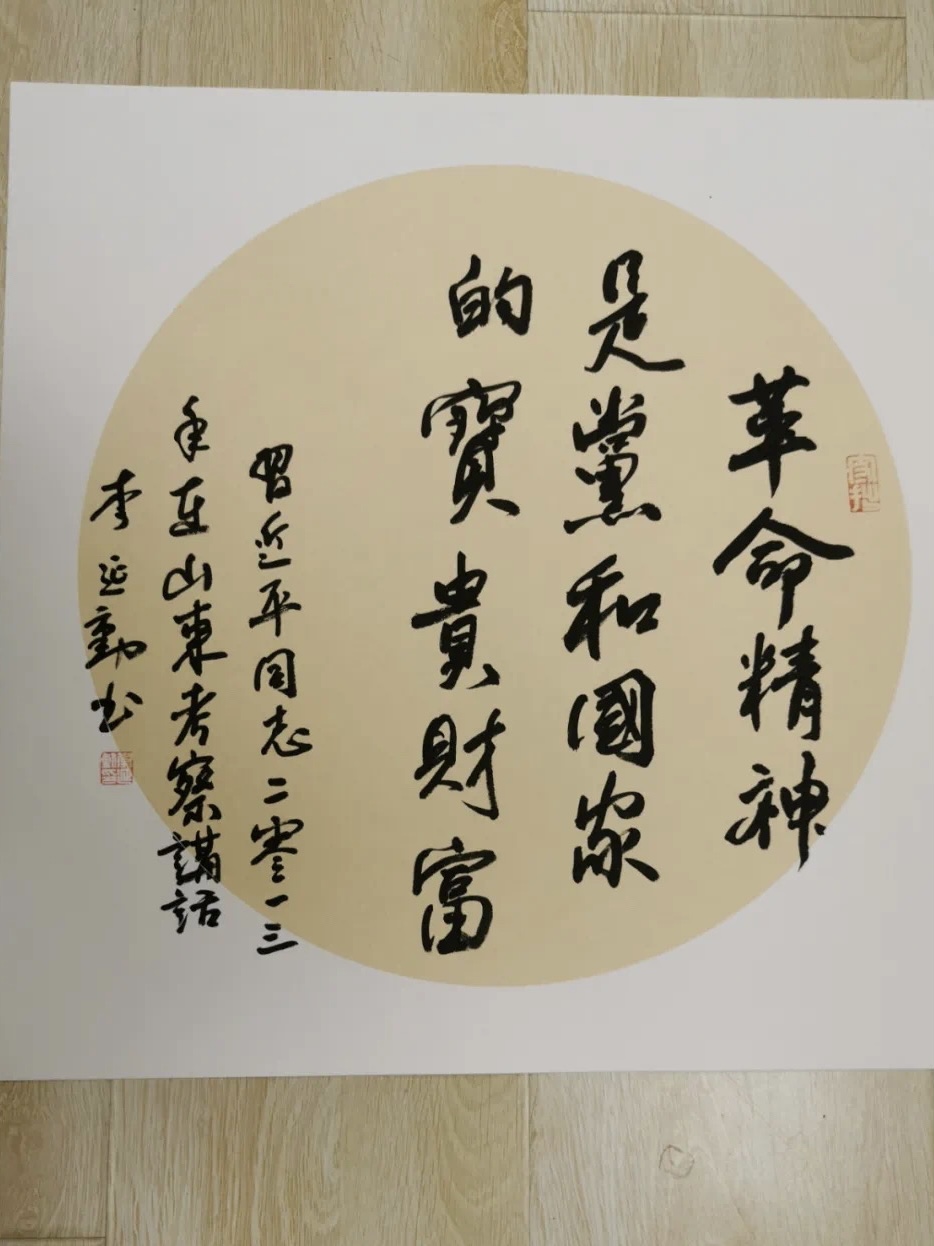 革命精神
是黨和國家
的寶貴財富
習近平同志二零一三
年在山東考察講話
李延勳书